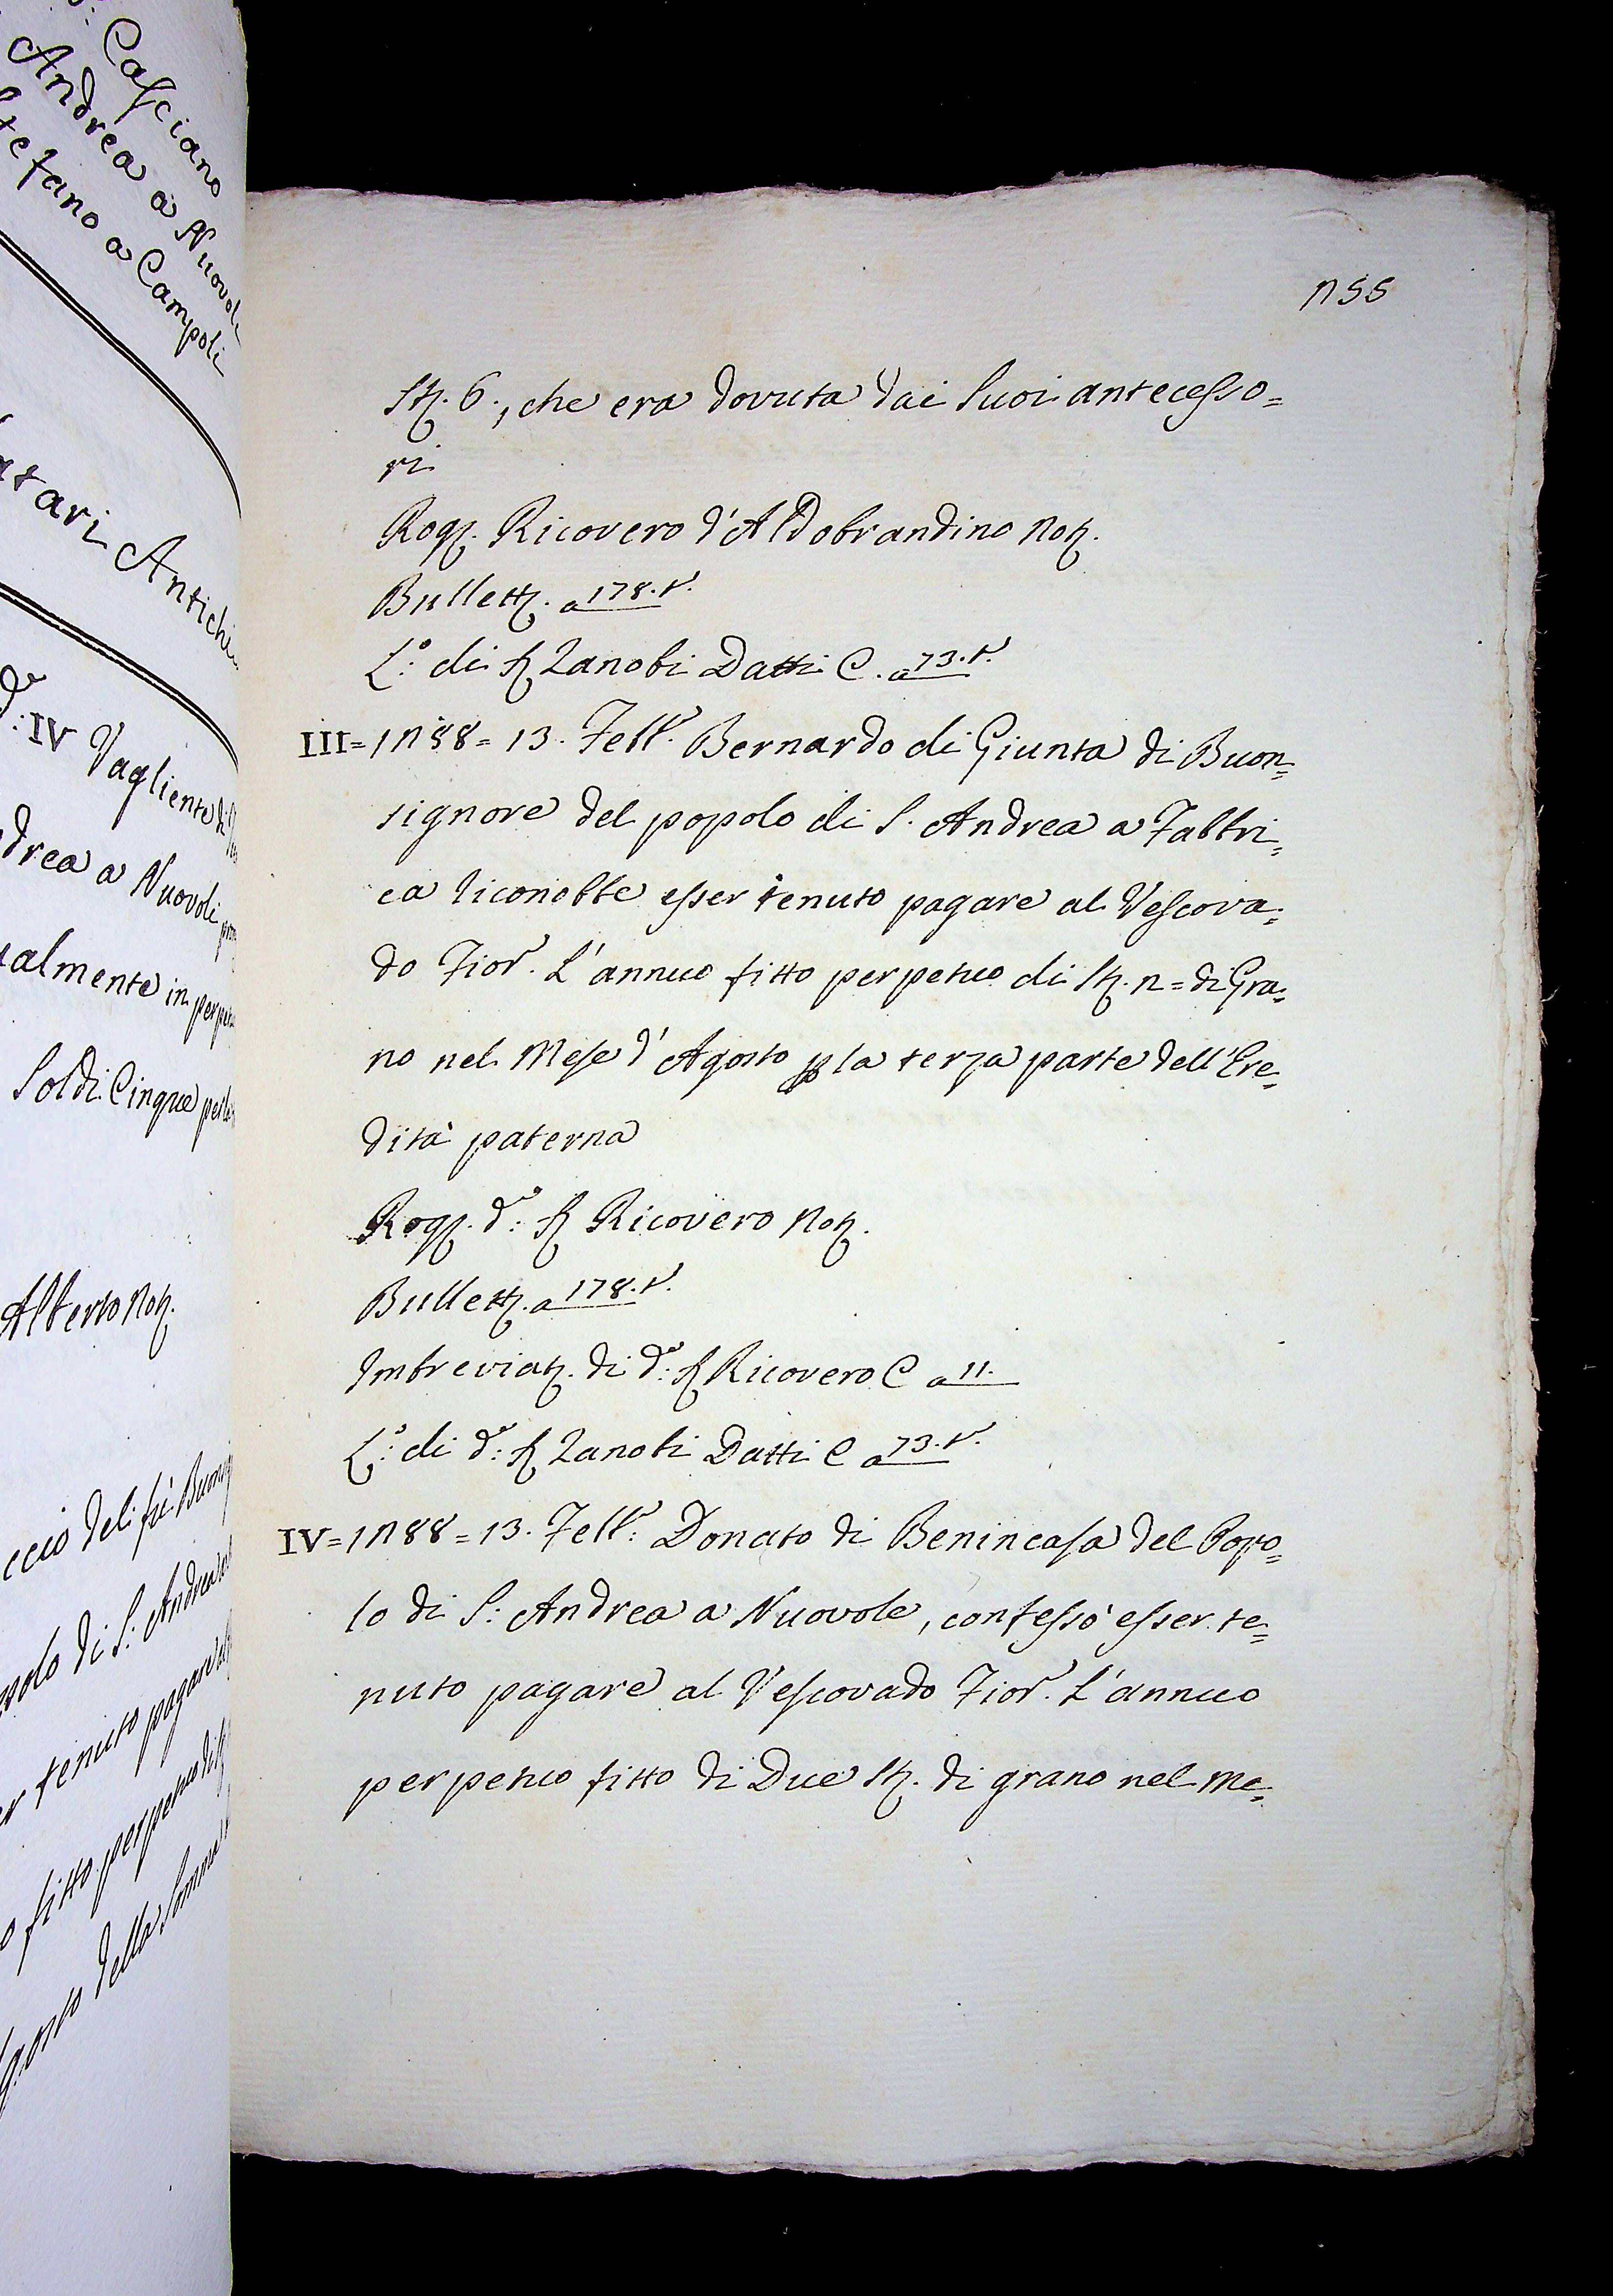 : Casciano
Andrea a Nuovoli
Stefano a Campoli
Antichi
IV Vagliente di
drea a Nuovoli
almente in perpe
Soldi Cinque per
Alberto Not.
ccio del fù Buon
polo di S: Andrea
er tenuto pagare al
o fitto perpetuo di
Agosto della Somma
255
St. 6., che era dovuta dai Suoi antecesso=
ri
Rog. Ricovero d'Aldobrandino Not.
Bullett. a 178. t.
L.º di S. Zanobi Datti C. a 73. t.
III = 1288 = 13. Febb.º Bernardo di Giunta di Buon=
signore del popolo di S. Andrea a Fabbri=
ca riconobbe esser tenuto pagare al Vescova=
do Fior.º L'annuo fitto perpetuo di St. 2 = di Gra=
no nel Mese d'Agosto p la terza parte dell'Ere=
dità paterna
Rog. d.º: S. Ricovero Not.
Bullett. a 178. t.
Imbreviat. di d.º: S. Ricovero C a 11.
L.º: di d.º: S. Zanobi Datti C a 73. t.
IV = 1288 = 13. Febb.º: Donato di Benincasa del Popo=
lo di S: Andrea a Nuovole, confessò esser te=
nuto pagare al Vescovado Fior.º L'annuo
perpetuo fitto di Due St. di grano nel Me=